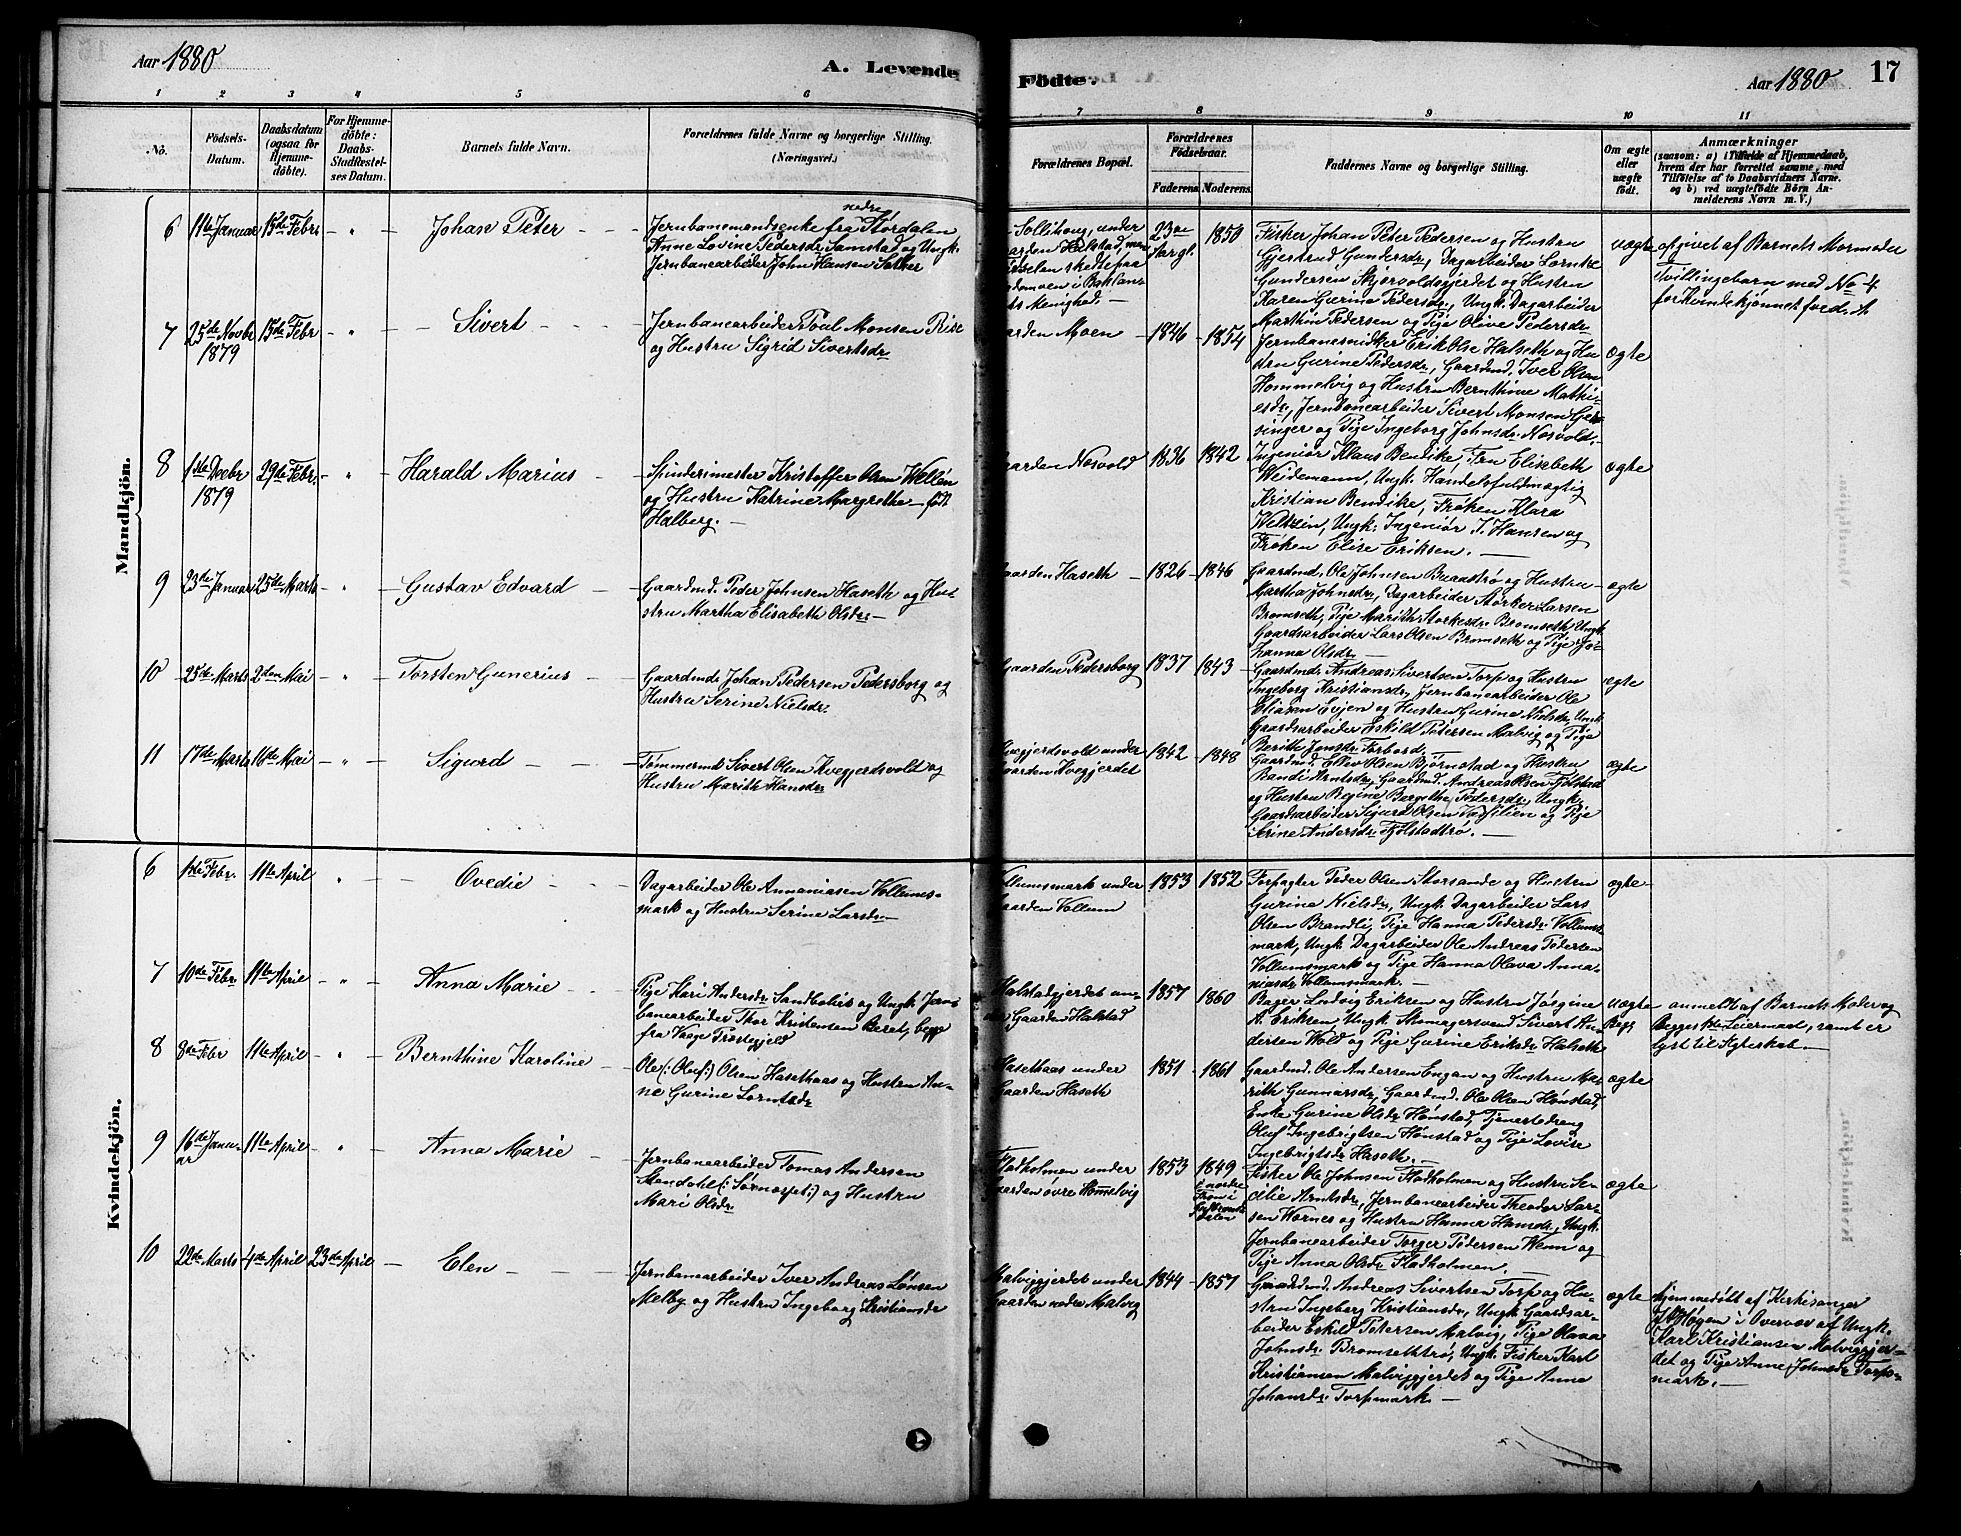 Aar 1880
A. Levende
Födte.
Aar 1880
17
1 2 3 4 5 6 7 8 9 10 11
No.
Födsels-
Datum.
Daabsdatum
(ogsaa for
Hjemme-
döbte).
For Hjemme-
döbte:
Daabs-
Stadfæstel-
ses Datum.
Barnets fulde Navn.
Forældrenes fulde Navne og borgerlige Stilling.
(Næringsvei.)
Forældrenes Bopæl.
Forældrenes
Födselsaar.
Faderens. Moderens.
Faddernes Navne og borgerlige Stilling.
Om ægte
eller
uægte
födt.
Anmærkninger
(saasom: a) i Tilfælde af Hjemmedaab,
hvem der har forrettet samme, med
Tilföielse af to Daabsvidners Navne.
og b) ved uægtefödte Börn An-
melderens Navn m. V.)
Mandkjön.
6 11te Januar 15de Febr. - " - Johan Peter
nedre
Jernbanemandsenke fra Stördalen
Anne Lovine Pedersdr. Samstad og Ungk.
Jernbanearbeider John Hansen Sather
Sollihoug, under
aarden Halstad, men
skedte paa
i Baklan-
ets Menighed. -
23 aar gl. 1850
Fisker Johan Peter Pedersen og Hustru
Gjertrud Gundersdr., Dagarbeider Lorntz
Gundersen Skjørvoldsgjerdet og Hustru
Karen Gurine Pedersdr., Ungk. Dagarbeider
Martin Pedersen og Pige Olive Pedersdr.
uægte
opgivet af Barnets Mormoder
Tvillingebarn med No 4
for Kvindekjønnet foreg. A
7 25de Novbr. 1879 15de Febr. " Sivert
Jernbanearbeider Poul Monsen Rise
og Hustru Sigrid Sivertsdr.
aarden Moen 1846 - 1854
Jernbanesnidker Erik Olse Halseth og Hu-
stru Gurine Pedersdr., Gaardmd. Iver Olsen
Hommelvig og Hustru Bernthine Mathi-
esdr., Jernbanearbeider Sivert Monsen Gjes-
singer og Pige Ingeborg Johnsdr. Nosvold.
ægte
8 1ste Decbr. 1879 29te Febr. " Harald Marius
Spinderimester Kristoffer Olsen Wellén
og Hustru Katrine Margrethe - født
Halberg. -
aarden Nosvold 1836 1842
Ingeniør Klaus Bendike, Fru Elisebeth
Weidemann, Ungk. Handelsfuldmægtig
Kristian Bendike, Frøken Klara
Weltzin, Ungk. Ingeniør J. Hansen og
Frøken Elise Eriksen. -
ægte
9 23de Januar 25de Marts " Gustav Edvard
Gaardmd. Peder Johnsen Haseth og Hu-
stru Martha Elisabeth Olsdr. -
aarden Haseth 1826 - 1846
Gaardmd. Ole Johnsen Bruaströ og Hustru
Martha Johnsdr., Dagarbeider Störker Larsen
Bromseth, Pige Marith Storkesdr. Bromseth, Ungk.
Gaardsarbeider Lars Olsen Bromseth og Pige Jo-
hanna Olsdr. -
ægte
10 25de Marts 2den Mai " Torsten Gunerius
Gaardmd. Johan Pedersen Pedersborg og
Hustru Serine Nielsdr.
Gaarden Pedersborg 1837 1843
Gaardmd. Andreas Sivertsen Torp og Hustru
Ingeborg Kristiansdr., Jernbanearbeider Ole
Eliasen Leijen og Hustru Gurine Nielsdr., Ungk.
Gaardsarbeider Eskild Petersen Malvig og Pige
Berith Jonsdr. Forbord.
ægte
11 17de Marts 16de Mai " Sigurd
Tømmermd. Sivert Olsen Kvegjerdsvold og
Hustru Marith Hansdr.
Kvegjerdsvold under
Gaarden Kvegjerdet 1842 1848
Gaardmd. Ellev Olsen Bjørnstad og Hustru
Randi Arntsdr., Gaardmd. Andreas Olsen Fjölstad
og Hustru Regine Bergithe Pedersdr., Ungk.
Gaardsarbeider Sigurd Olsen og Pige
Serine Andersdr. Fjölstadtrø. -
ægte
Kvindekjön.
6 1ste Febr. 11te April " Ovedie
Dagarbeider Ole Annaniasen Vollums-
mark og Hustru Serine Larsdr. -
Vollumsmark under
Gaarden Vollum 1853 1852
Forpagter Peder Olsen Storsande og Hustru
Gurine Nielsdr., Ungk. Dagarbeider Lars
Olsen Brandli, Pige Hanna Pedersdr. Vollums-
mark, Ungk. Dagarbeider Ole Andreas Pedersen
Vollumsmark og Pige Hanna Olava Anna-
niasdr. Vollumsmark. -
ægte
7 10de Febr. 11te April " Anna Marie
Pige Kari Andersdr. Sandbolies og Ungk. Jern-
banearbeider Thor Kristensen Beret, begge
fra Vaage Præstegjeld
Halstadgjerdet un-
der Gaarden Halstad 1857 1860
Bager Ludvig Eriksen og Hustru Jørgine
A. Eriksen, Ungk. Skomagersvend Sivert An-
dersen Wold og Pige Gurine Eriksdr. Halseth
uægte
Begg.
anmeldt af Barnets Moder og
Begges 1ste Leiermaal, samt er
lyst til Ægteskab. -
8 8de Febr 11te April " Bernthine Karoline
Ole (: Oluf:) Olsen Hasethaas og Hustru An-
ne Gurine Lorntsdr.
Hasethaas under
Gaarden Haseth 1851 - 1861
Gaardmd. Ole Andersen Engan og Hustru Ma-
rith Gunnarsdr., Gaardmd. Ole Olsen Hønstad,
Enke Gurine Olsdr. Hønstad, Tjenestedreng
Oluf Ingebrigtsen Hønstad og Pige Lovise
Ingebrigtsdr. Haseth. -
ægte
9 16de Janu-
ar 11te April " Anna Marie
Jernbanearbeider Tomas Andersen
Stendahl (: Sørnospet:) og Hustru
Mari Olsdr.
Fladholmen under
Gaarden övre Hommelvig 1853 1849
Fisker Ole Johnsen Fladholmen og Hustru Se-
cilie Arntsdr., Jernbanearbeider Theodor Lar-
sen Wornes og Hustru Hanna Hansdr., Ungk.
Jernbanearbeider Torger Pedersen Wenn og
Pige Anna Olsdr. Fladholmen. -
ægte
10 22de Marts 4de April 23de April Elen
Jernbanearbeider Iver Andreas Lønsen
Melby og Hustru Ingeborg Kristiansdr.
Malviggjerdet under
Gaarden nedre Malvig 1844 - 1857
Gaardmd. Andreas Sivertsen Torp og Hu-
stru Ingeborg Kristiansdr., Ungk. Gaardsar-
beider Eskild Petersen Malvig, Pige Olava
Johnsdr. Bromsethtrö, Ungk. Fisker Karl
Kristiansen Malviggjerdet og Pige Anna
Johansdr. Torpmark. -
ægte
hjemmedöbt af Kirkesanger
Høgen i Overvær af Ungk.
Karl Kristiansen Malviggjer-
det og Pige Anne Johnsdr. Torps-
mark. -